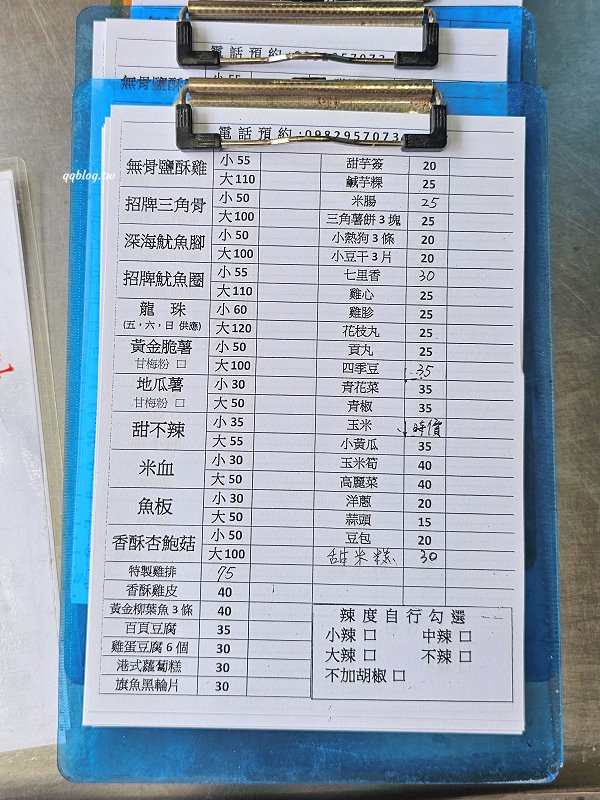 電話預約
無骨鹽酥
qqblog.tw
電話預約:0982957073
無骨鹽酥雞 小 55 大 110
招牌三角骨 小 50 大 100
深海魷魚腳 小 50 大 100
招牌魷魚圈 小 55 大 110
龍珠 (五,六,日 供應) 小 60 大 120
黃金脆薯 甘梅粉 口 小 50 大 100
地瓜薯 甘梅粉 口 小 30 大 50
甜不辣 小 35 大 55
米血 小 30 大 50
魚板 小 30 大 50
香酥杏鮑菇 小 50 大 100
特製雞排 75
香酥雞皮 40
黃金柳葉魚 3 條 40
百頁豆腐 35
雞蛋豆腐 6 個 30
港式蘿蔔糕 30
旗魚黑輪片 30
甜芋簽 20
鹹芋粿 25
米腸 25
三角薯餅 3 塊 25
小熱狗 3 條 20
小豆干 3 片 20
七里香 30
雞心 25
雞胗 25
花枝丸 25
貢丸 25
四季豆 35
青花菜 35
青椒 35
玉米 小時價
小黃瓜 35
玉米筍 40
高麗菜 40
洋蔥 20
蒜頭 15
豆包 20
甜米糕 30
辣度自行勾選
小辣 口 中辣 口
大辣 口 不辣 口
不加胡椒 口